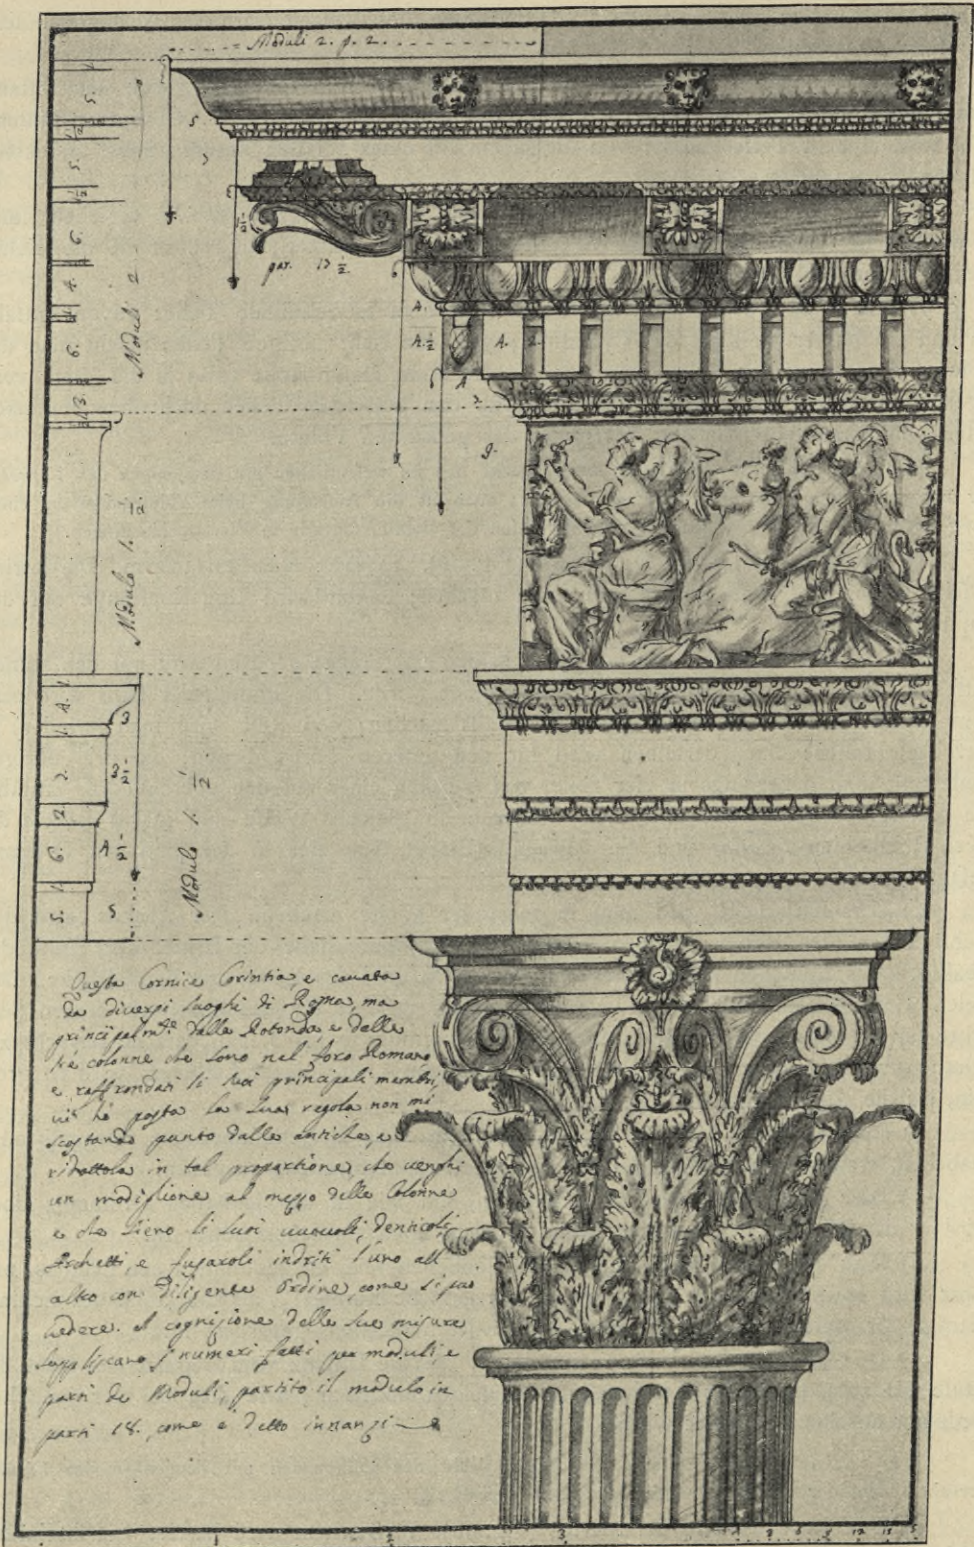 Moduli 2. p. 2.
5.
1
1/2
5.
1/2
6.
4.
6.
3
Moduli 2
5
par. 13 1/2
6
A.
A. 1/2
A. 2.
6 A
2
9.
Modulo 1. 1/2.
A.
3
7.
3 1/2
2
6.
A 1/2
5.
5
Modulo 1. 1/2
Questa Cornice Corintia, e cavata
da diversi luoghi di Roma, ma
principalm.te dalla Rotonda, e dalle
tré colonne che sono nel foro Romano
e raffrondati li suoi principali membri,
vi hó posta la sua regola non mi
scostando punto dalle antiche, e
ridottola in tal proportione, che venghi
un modiglione al mezzo delle Colonne
e che sieno li suoi uuovoli, denticoli,
Archetti, e fusaroli indriti l'uno all
altro con diligente Ordine, come si può
vedere. A cognizione delle sue misure
suppliscano i numeri fatti per moduli e
parti de Moduli, partito il modulo in
parti 18. come e detto innanzi
1 2 3 3 6 9 12 15